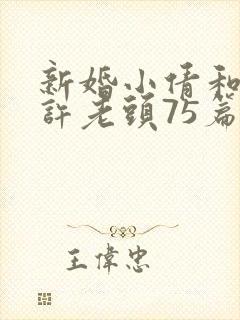 新婚小倩和
許老頭75篇
王偉忠